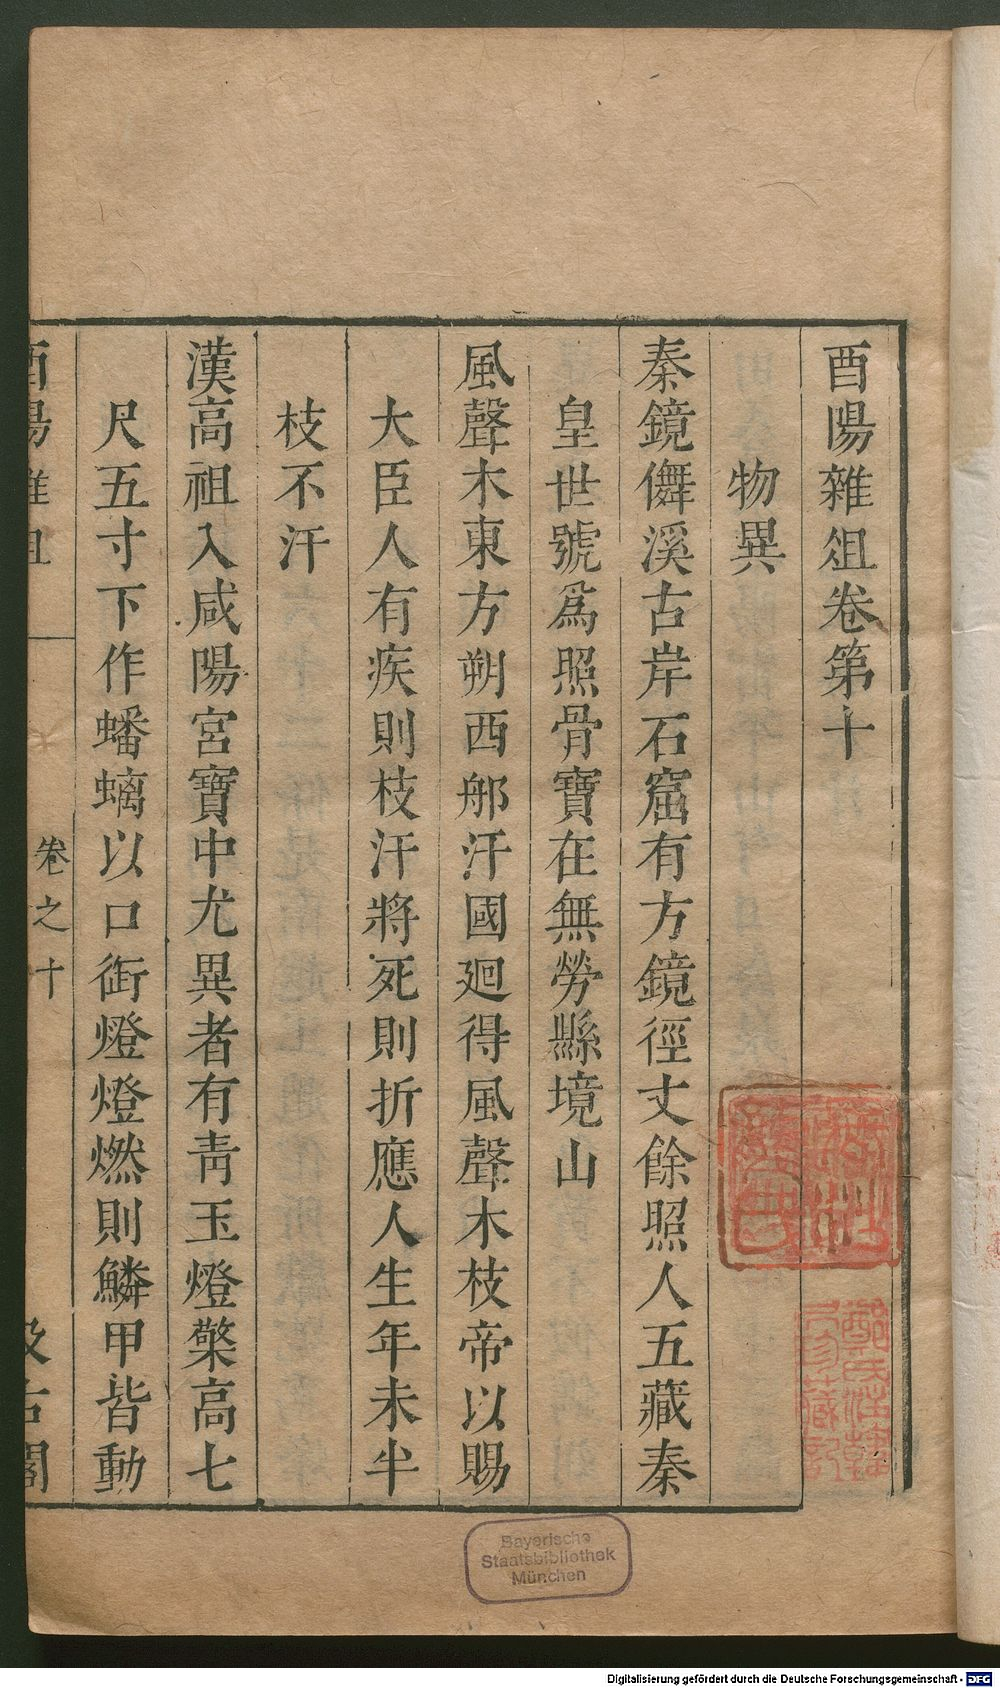 酉陽雜俎卷第十
物異
秦鏡儛溪古岸石窟有方鏡徑丈餘照人五藏秦
皇世號爲照骨寶在無勞縣境山
風聲木東方朔西郍汗國廻得風聲木枝帝以賜
大臣人有疾則枝汗將死則折應人生年未半
枝不汗
漢高祖入咸陽宮寶中尤異者有靑玉燈檠高七
尺五寸下作蟠螭以口銜燈燈燃則鱗甲皆動
酉陽雜俎
卷之十
汲古閣
Bayerische
Staatsbibliothek
München
Digitalisierung gefördert durch die Deutsche Forschungsgemeinschaft - DFG